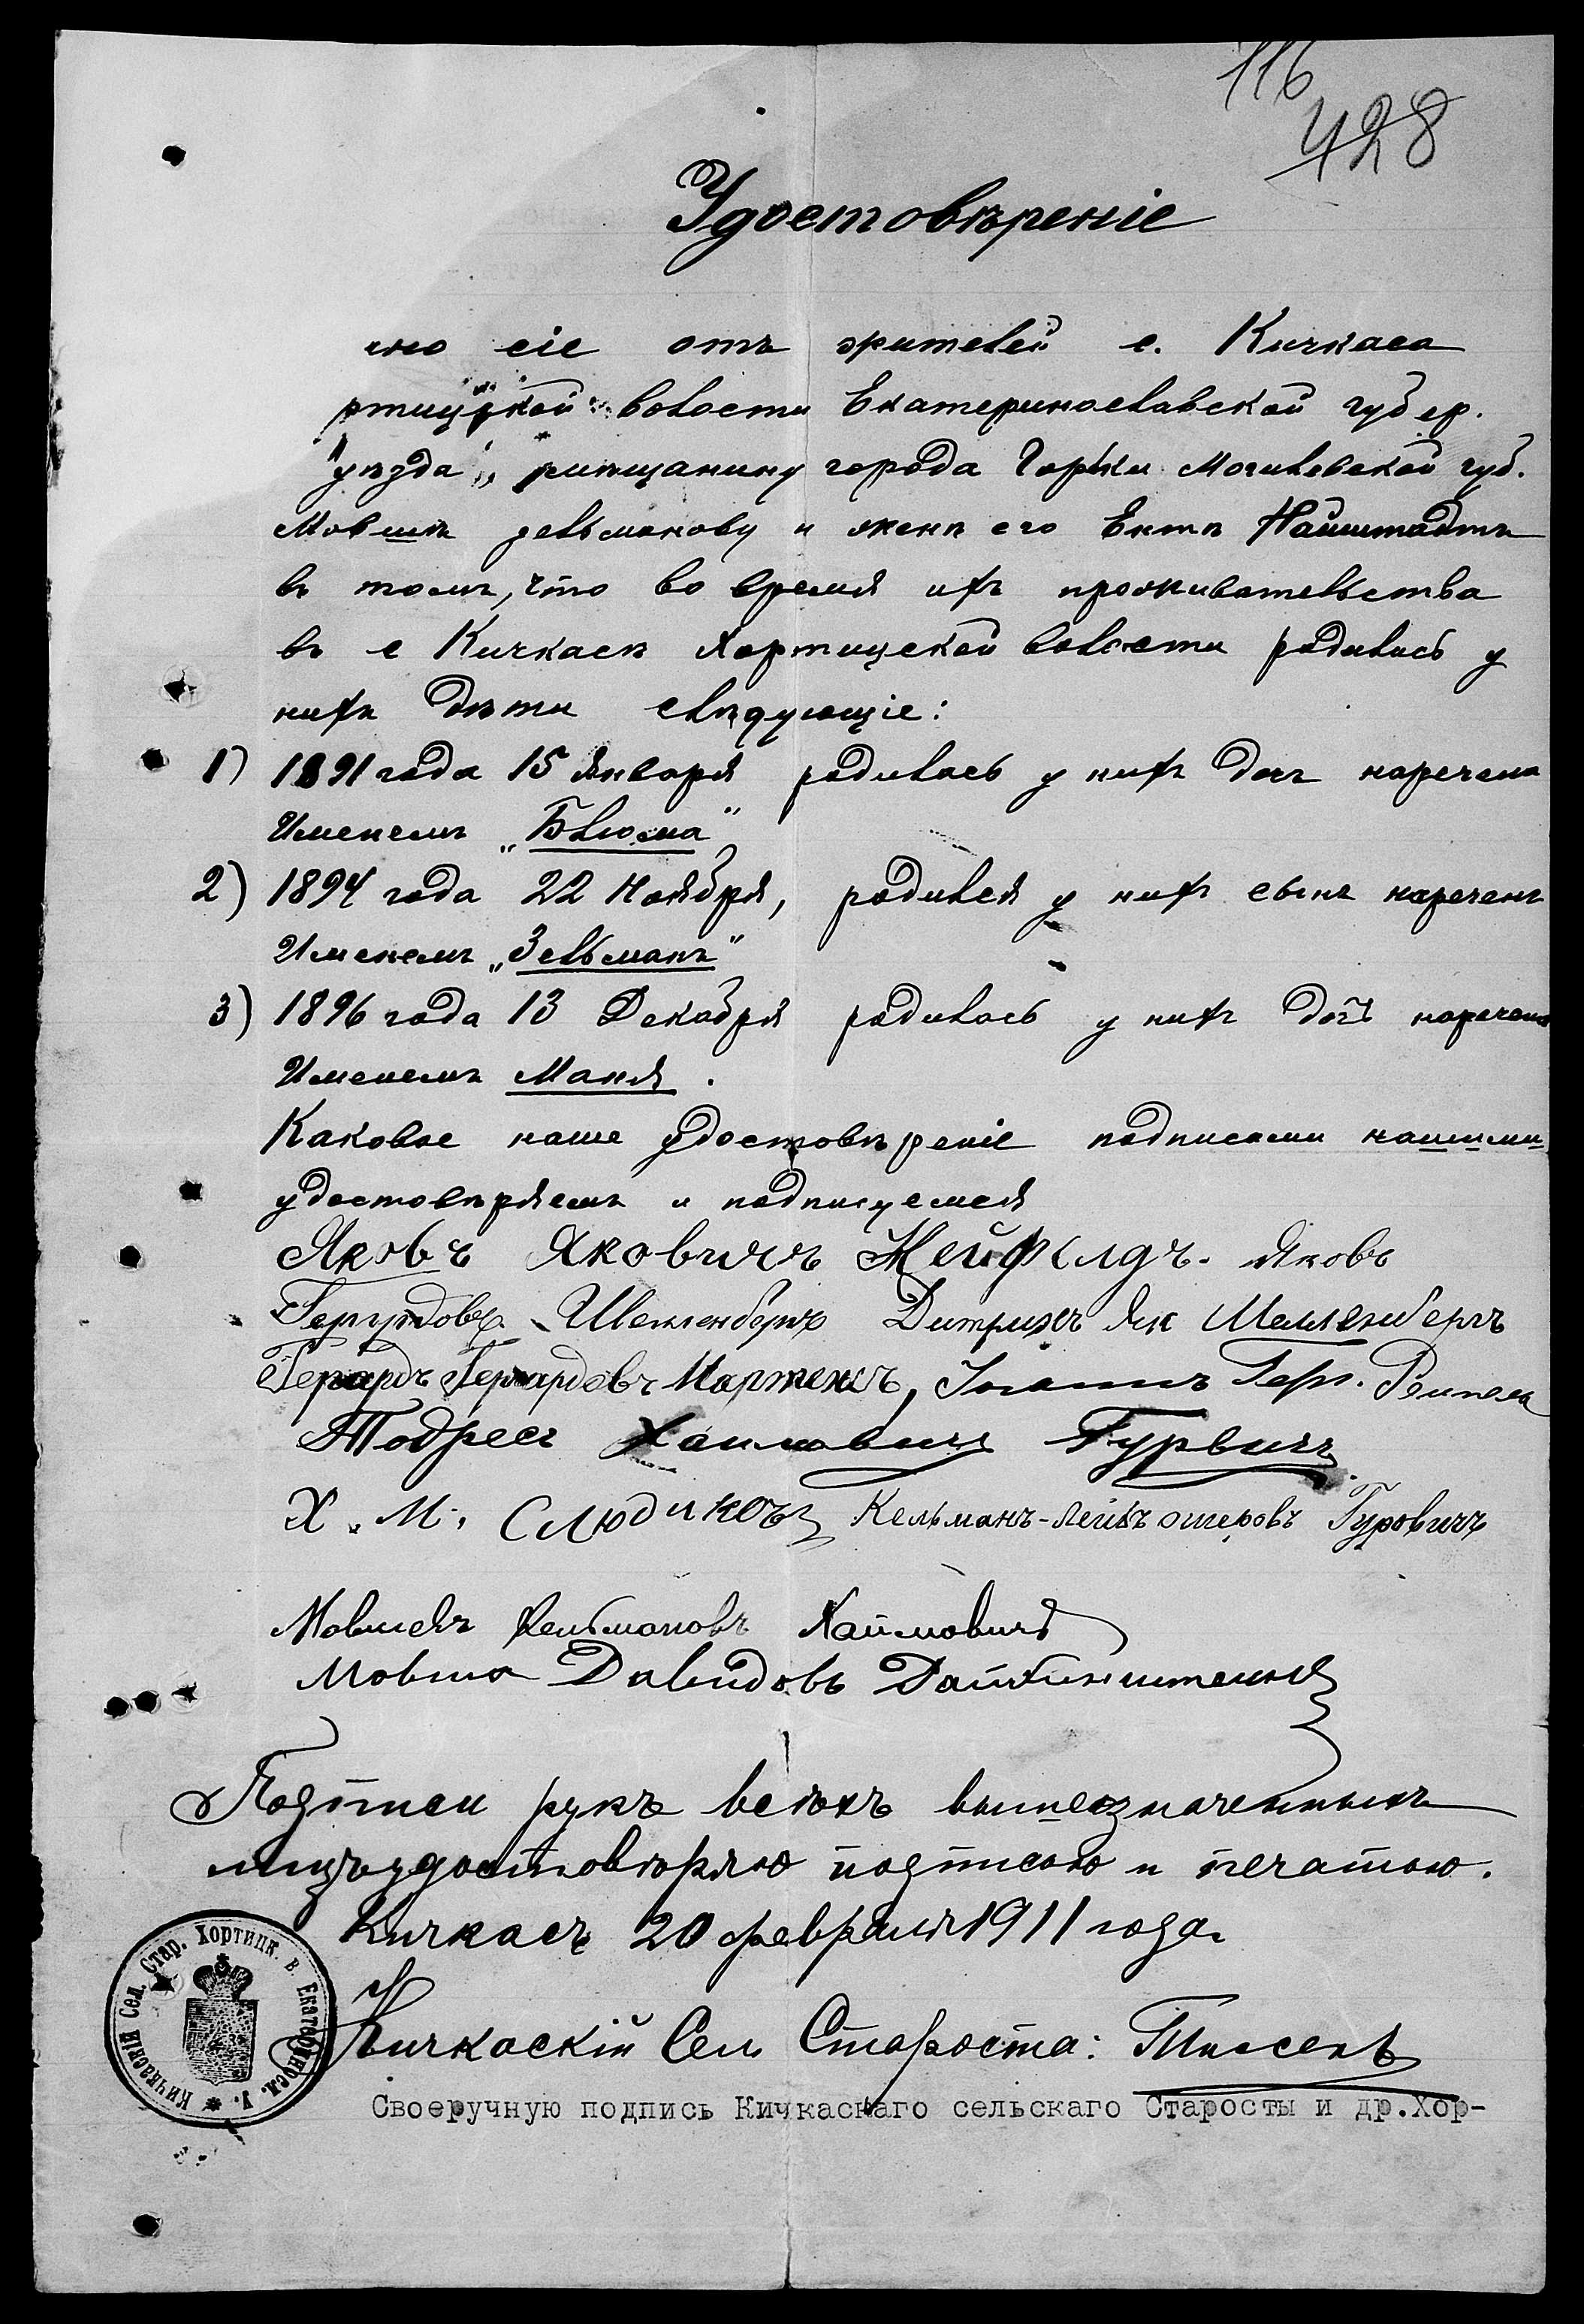 116
428
Удостовѣреніе
сіе отъ жителей с. Кичкаса
ртицкой волости Екатеринославской губер.
уѣзда, мѣщанину города Горки Могилевской губ.
Мовшѣ Зельманову и женѣ его Ентѣ Найштадтъ
въ томъ, что во время ихъ проживательства
въ с Кичкасѣ Хортицской волости родились у
нихъ дѣти слѣдующіе:
1) 1891 года 15 Января родилась у нихъ дочъ наречена
Именемъ „Блюма"
2) 1894 года 22 Ноября, родился у нихъ сынъ нареченъ
Именемъ „Зельманъ"
3) 1896 года 13 Декабря родилась у нихъ дочь наречена
Именемъ Маня.
Каковое наше удостовѣреніе подписами нашими
удостовѣряемъ и подписуемся
Яковъ Яковичъ Нейфелдъ. Яковъ
Шелленбергъ Дитрихъ Як Шелленбергъ
Герардъ Герардовъ Мартенсъ, Іоганнъ Гер. Ремпель
Тодресъ Хаимовичъ Гурвичъ
Х. М. Слюдиковъ Кельманъ-Лейбъ Ошеровъ Гуровичъ
Мовшевъ Хаймовичъ
Мовша Давидовъ
Подписи рукъ всѣхъ вышеозначенныхъ
лицъ удостовѣряю подписью и печатью.
Кичкасъ 20 февраля 1911 года.
Кичкаскій Сел. Староста: Тиссенъ
Кичкаскій Сел. Стар. Хортицк. в. Екатериносл. у.
Своеручную подпись Кичкаскаго сельскаго Старосты и др.Хор-